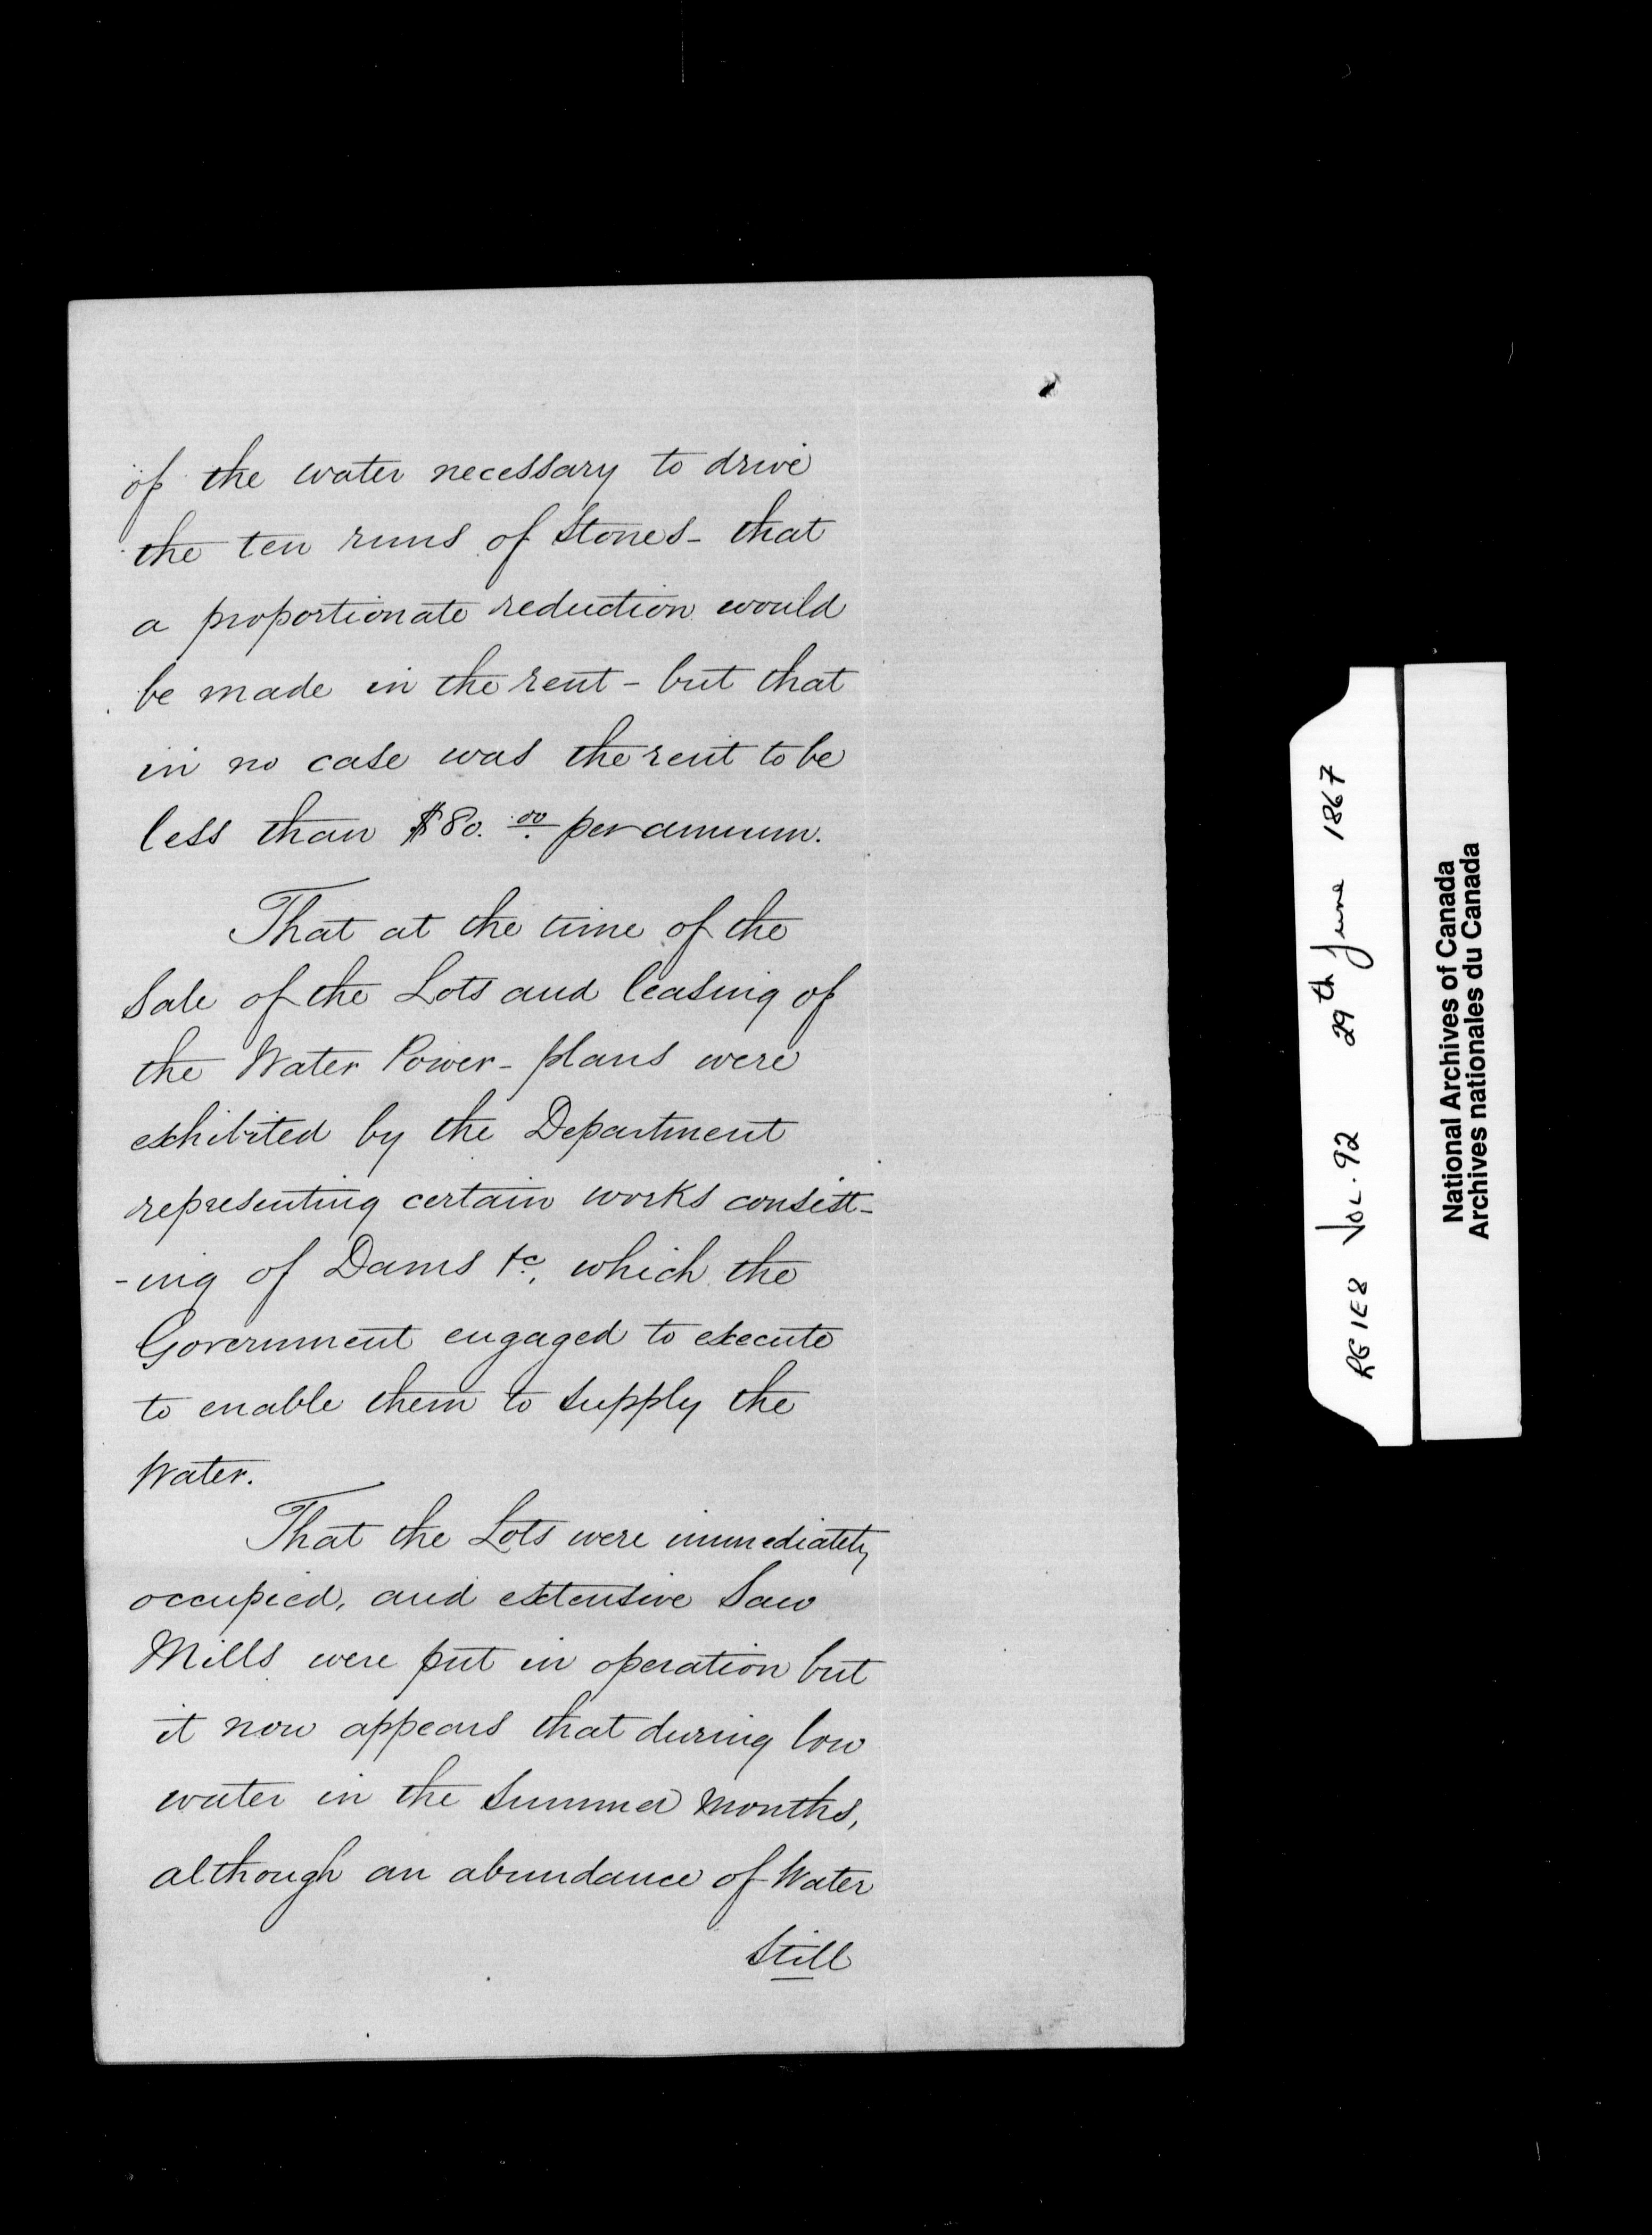 of the water necessary to drive
the ten runs of Stones - that
a proportionate reduction would
be made in the rent - but that
in no case was the rent to be
less than $80.00 per annum.
That at the time of the
Sale of the Lots and leasing of
the Water Power - plans were
exhibited by the Department
representing certain works consist-
-ing of Dams &c, which the
Government engaged to execute
to enable them to supply the
Water.
That the Lots were immediately
occupied, and extensive Saw
Mills were put in operation but
it now appears that during low
water in the Summer Months,
although an abundance of Water
Still
RG 1 E8 VOL. 92 29th June 1867
National Archives of Canada
Archives nationales du Canada